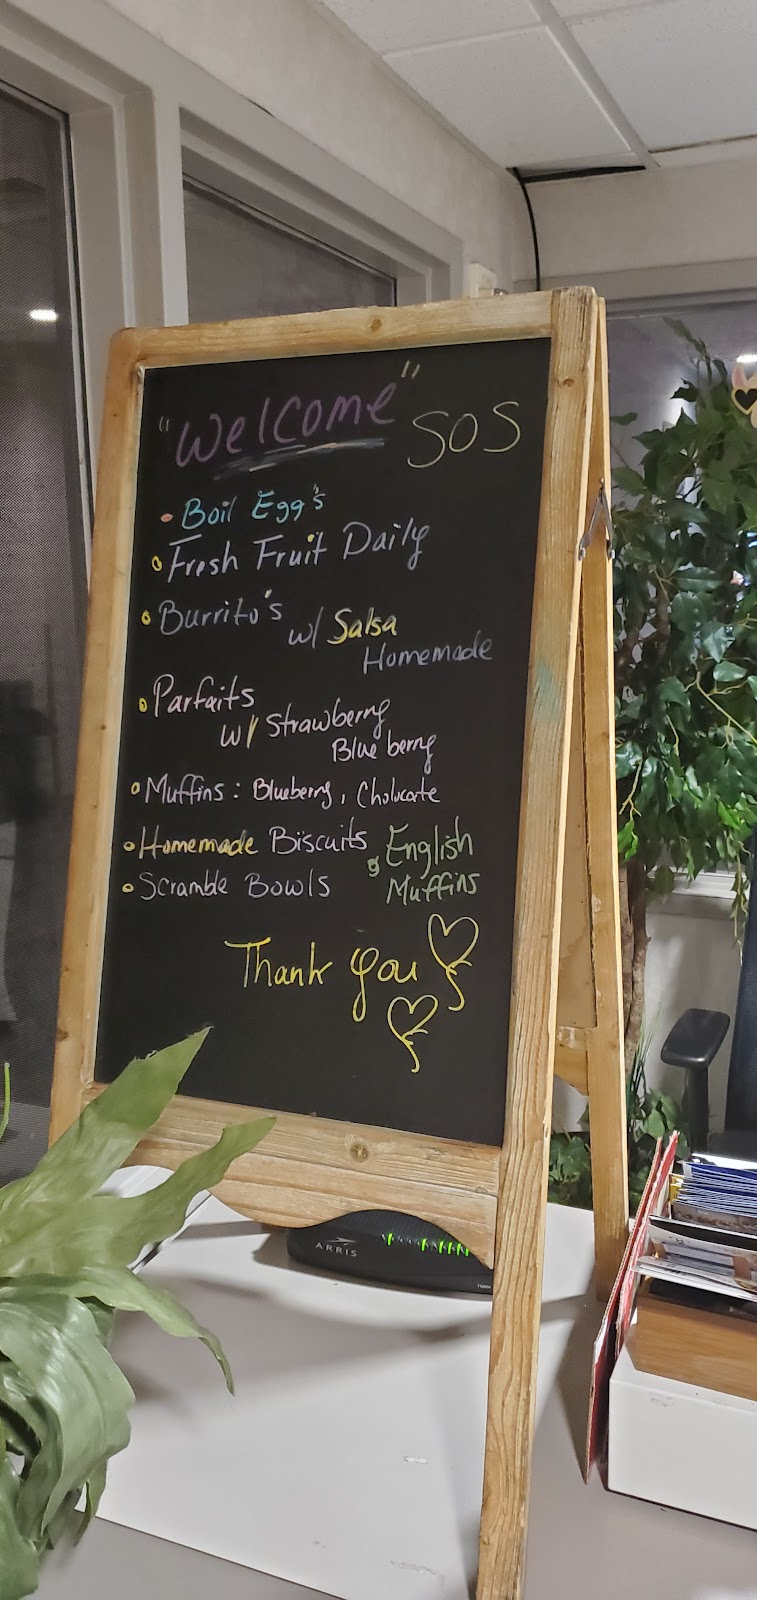 "Welcome" SOS
• Boil Egg's
• Fresh Fruit Daily
• Burrito's w/ Salsa
Homemade
• Parfaits
w/ Strawberry
Blue berry
• Muffins: Blueberry, Cholocate
• Homemade Biscuits
• English
Muffins
• Scramble Bowls
Thank you
ARRIS